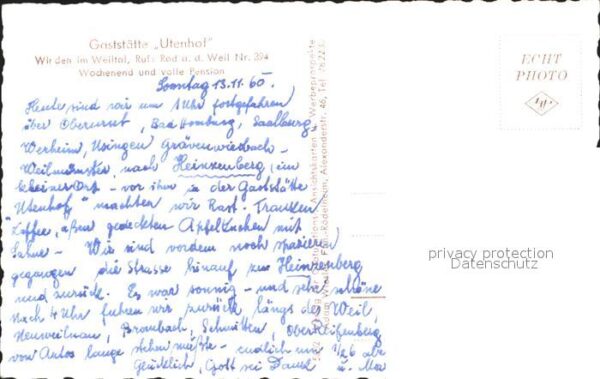 Gaststätte „Utenhof"
Wirden im Weiltal, Ruf: Rod a. d. Weil Nr. 394
Wochenend und volle Pension
Sonntag 13.11.60.
Heute sind wir um 1 Uhr fortgefahren
über Oberursel, Bad Homburg, Saalburg,
Werheim, Usingen Grävenwiesbach -
Weilmünster, nach Heinzenberg (ein
kleiner Ort - vor ihm in der Gaststätte
"Utenhof" machten wir Rast. Tranken
Kaffee, aßen gedeckten Apfelkuchen mit
Sahne - Wir sind vordem noch spazieren
gegangen die Strasse hinauf zu Heinzenberg
und zurück. Es war sonnig - und sehr schöne
Nach 4 Uhr fuhren wir zurück längs der Weil,
Neuweilnau, Brombach, Schmitten, Oberreifenberg
von Autos lange stehen mußte - endlich um 1/2 6 ab
Glücklich, Gott sei Dank u. Ma
ECHT
PHOTO
privacy protection
Datenschutz